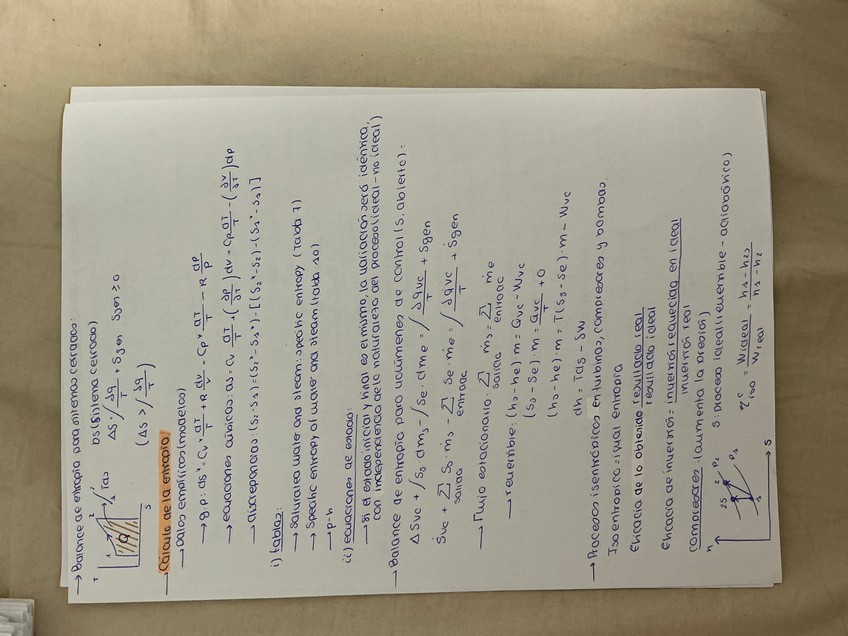 → Balance de entropía para sistemas cerrados:
T
Q
1
2
∫Tds
S
DS (sistema cerrado)
ΔS = ∫ δq/T + Sgen   Sgen ≥ 0
(ΔS ≥ ∫ δq/T)
→ Cálculo de la entropía
→ Datos empíricos (modelos)
→ g.p: ds* = Cv* dT/T + R dv/v = Cp* dT/T − R dp/p
→ ecuaciones cúbicas: ds = Cv dT/T + (∂p/∂T) dv = Cp dT/T − (∂v/∂T) dp
→ discrepancias: (S2-S1) = (S2*-S1*) - [(S2*-S2) - (S1*-S1)]
i) tablas:
→ Saturated water and steam: specific entropy (Tabla 7)
→ Specific entropy of water and steam (tabla 10)
→ p-h
ii) ecuaciones de estado:
→ Si el estado inicial y final es el mismo, la variación será idéntica,
con independencia de la naturaleza del proceso (ideal - no ideal)
→ Balance de entropía para volúmenes de control (S. abierto):
ΔSvc + ∫ Ss dms − ∫ Se · dme = ∫ δqvc/T + Sgen
Ṡvc + Σ salida Ss ṁs − Σ entrada Se ṁe = ∫ δq̇vc/T + Ṡgen
→ Flujo estacionario: Σ salida ṁs = Σ entrada ṁe
→ reversible: (hs-he) ṁ = Qvc - Wvc
(Ss - Se) · ṁ = Qvc/T + 0
(hs-he) · ṁ = T(Ss - Se) · ṁ - Wvc
dh = Tds - δW
→ Procesos isentrópicos en turbinas, compresores y bombas.
Isoentrópico = igual entropía
Eficacia de lo obtenido = resultado real / resultado ideal
Eficacia de inversión = inversión requerida en ideal / inversión real
Compresores (aumenta la presión)
h
2s
2
P2
P1
1
S
S: proceso ideal (reversible - adiabático)
η iso c = Wideal / Wreal = h1 - h2s / h1 - h2